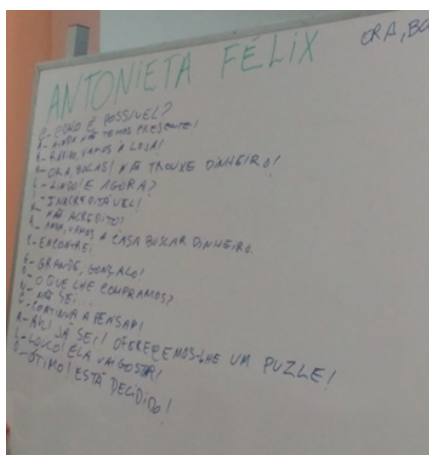 ANTONIETA FÉLIX
ORA, BO
C - COMO É POSSÍVEL?
A - AINDA NÃO TEMOS PRESENTE!
R - RÁPIDO, VAMOS À LOJA!
O - ORA, BOLAS! NÃO TROUXE DINHEIRO!
L - LINDO! E AGORA?
I - INACREDITÁVEL!
N - NÃO ACREDITO?
A - ANDA, VAMOS A CASA BUSCAR DINHEIRO.
E - ENCONTREI
G - GRANDE, GONÇALO!
O - O QUE LHE COMPRAMOS?
N - NÃO SEI...
C - CONTINUA A PENSAR!
A - AH! JÁ SEI! OFERECEMOS-LHE UM PUZLE!
L - LOGO! ELA VAI GOSTAR!
O - ÓTIMO! ESTÁ DECIDIDO!